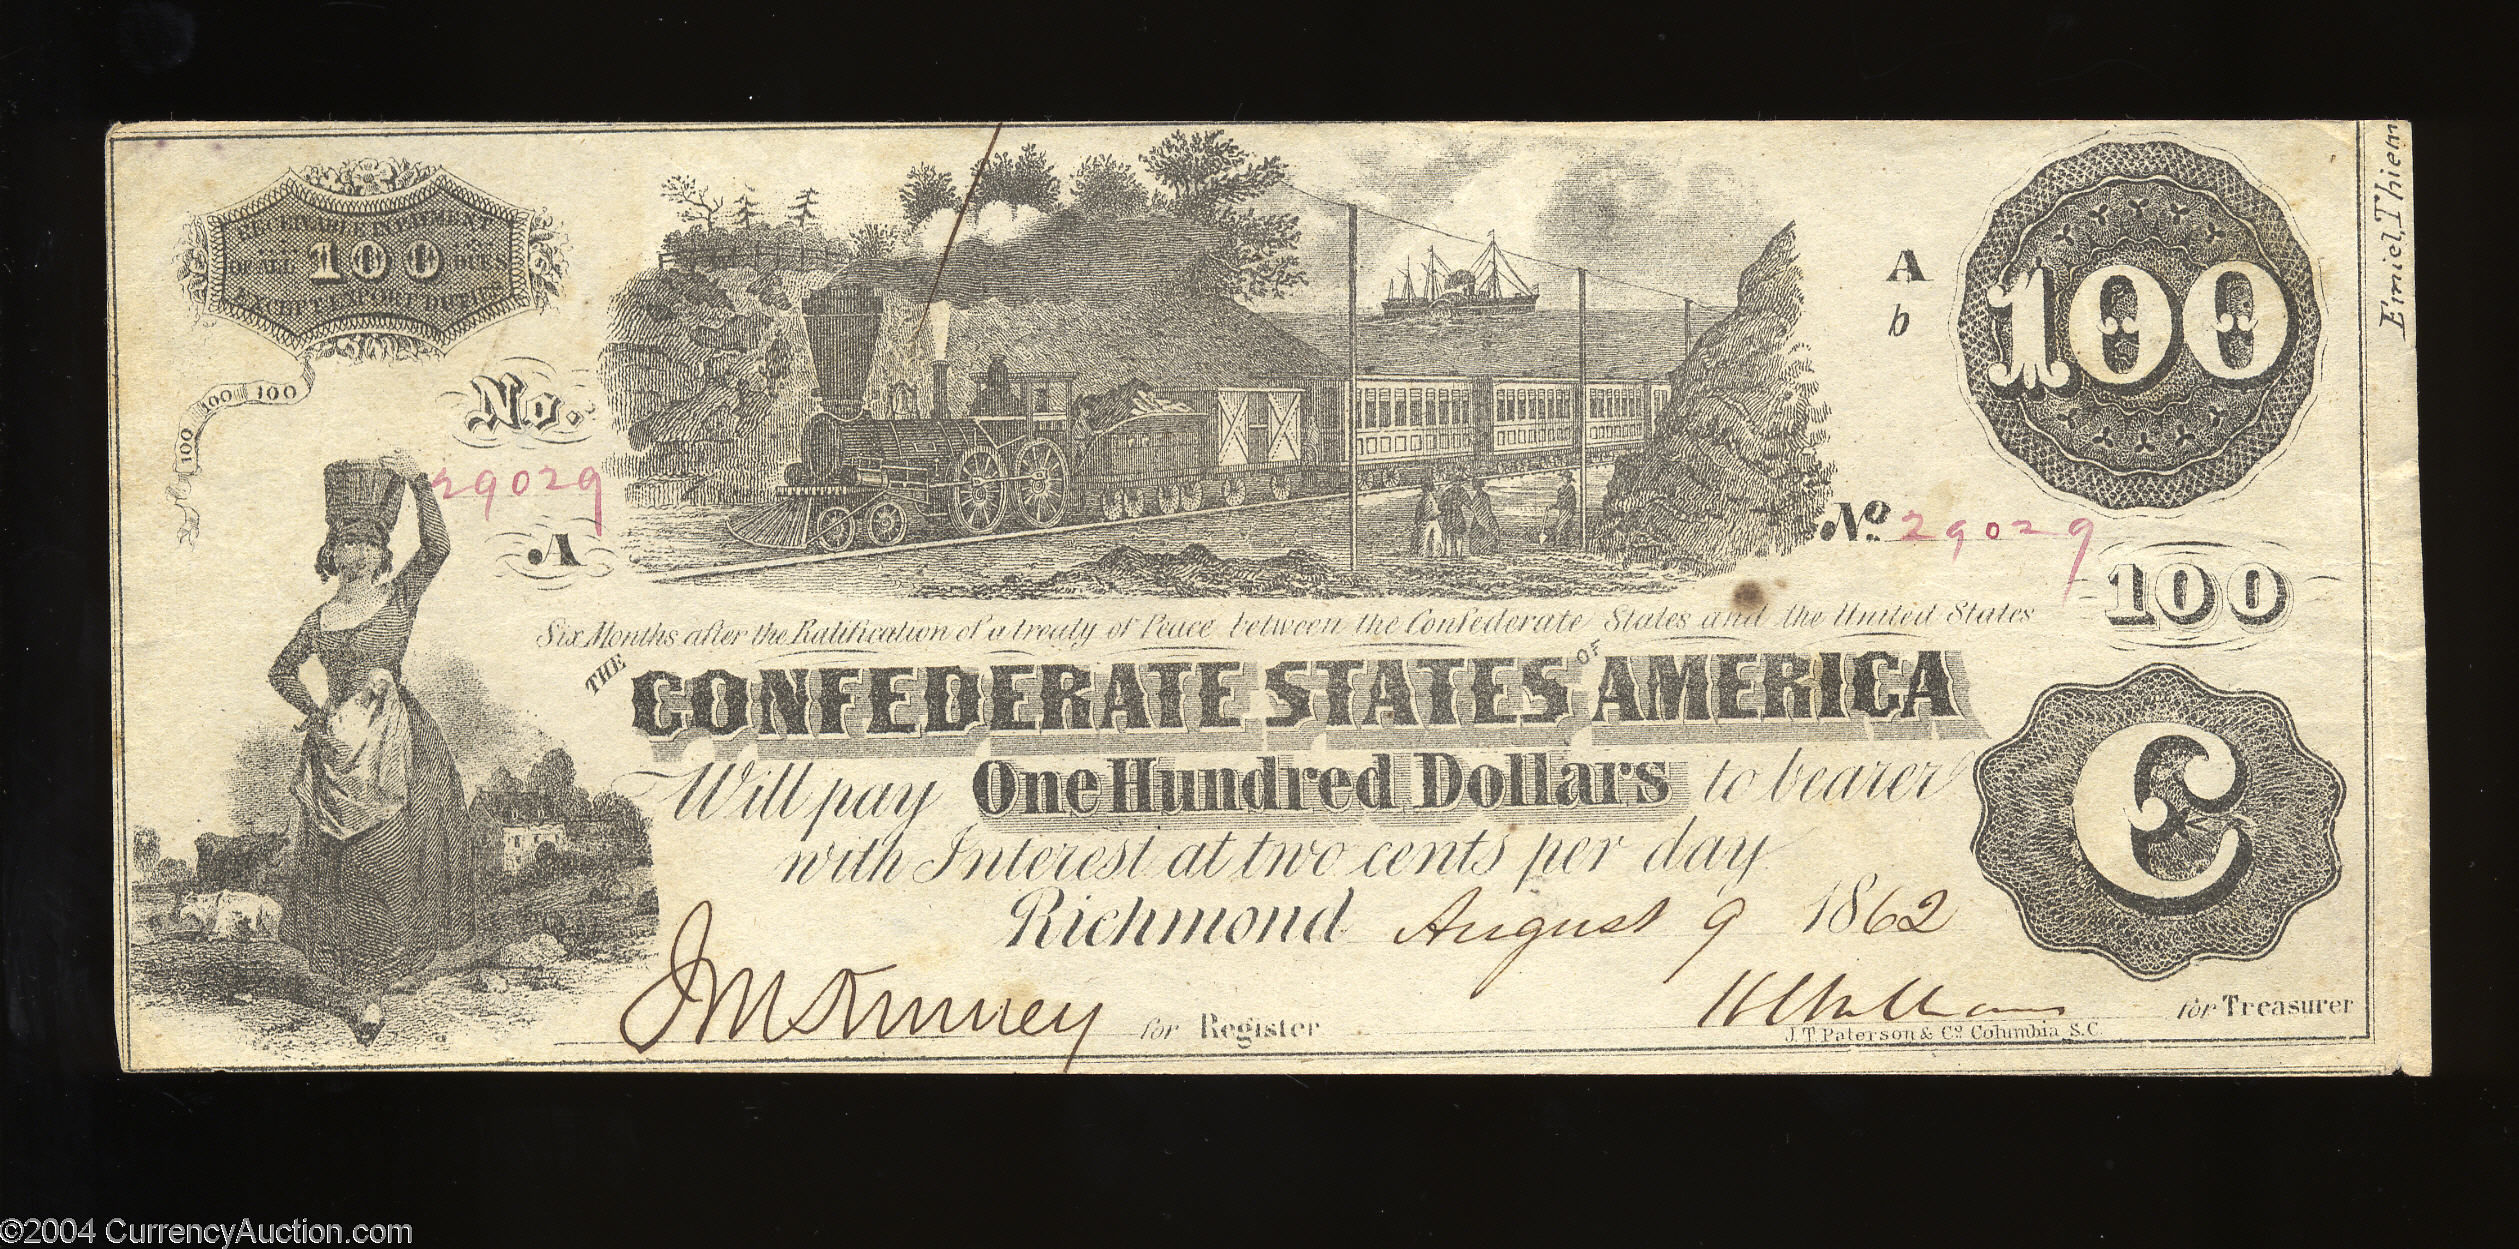 RECEIVABLE IN PAYMENT
OF ALL 100 DUES
EXCEPT EXPORT DUTIES
100 100 100
No.
29029
A
A
b
100
Emiel, Thiem
No. 29029
100
Six Months after the Ratification of a treaty of Peace between the Confederate States and the United States
THE CONFEDERATE STATES OF AMERICA
Will pay One Hundred Dollars to bearer
with Interest at two cents per day
C
Richmond August 9 1862
for Register
for Treasurer
J.T. Paterson & Co. Columbia S.C.
©2004 CurrencyAuction.com